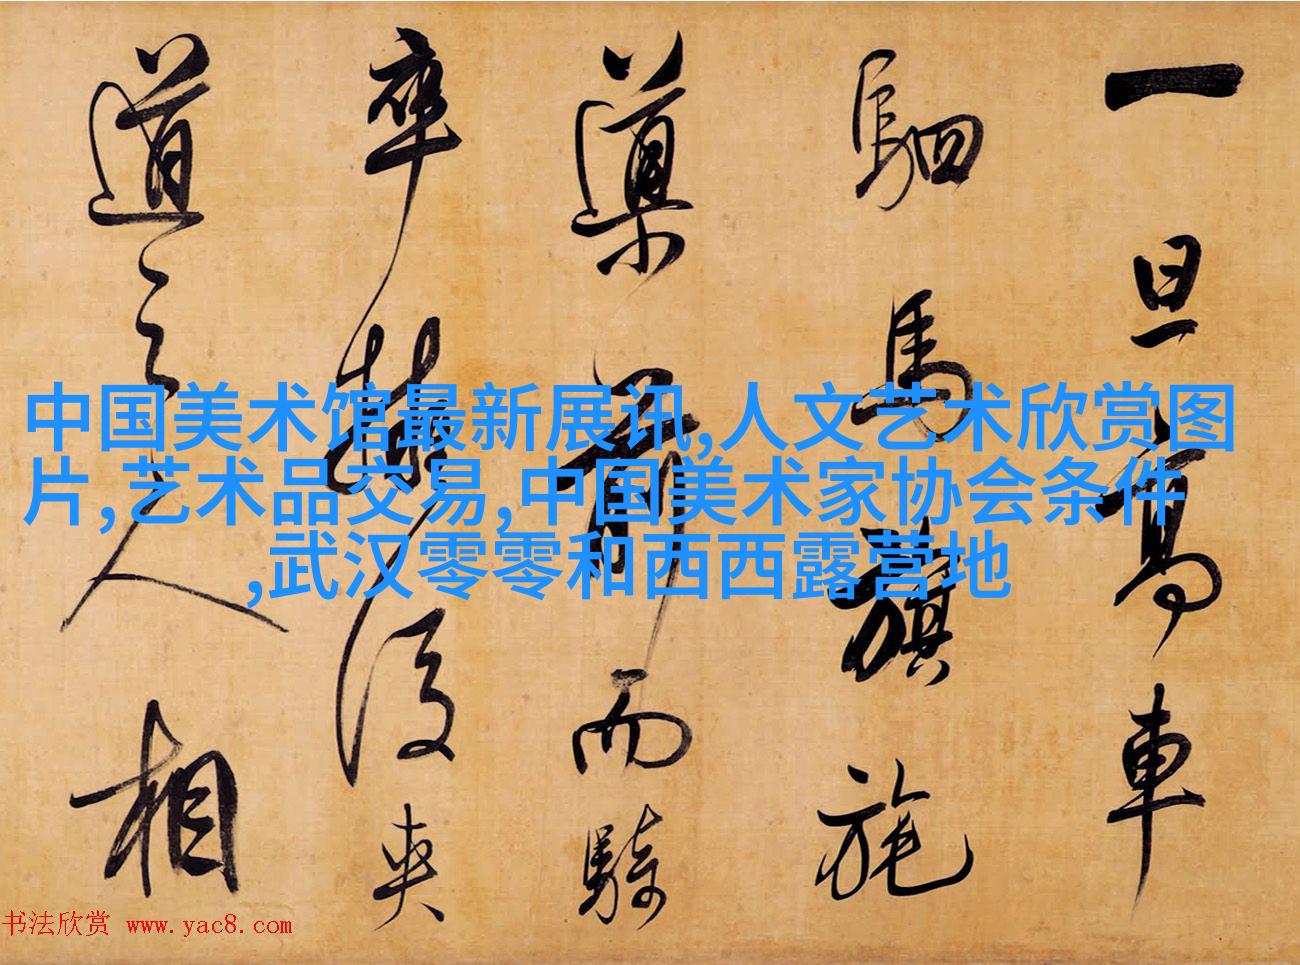 一旦高車
駟馬旗旄
導前而騎
卒擁後夾
道之人相
中国美术馆最新展讯,人文艺术欣赏图
片,艺术品交易,中国美术家协会条件
,武汉零零和西西露营地
书法欣赏 www.yac8.com